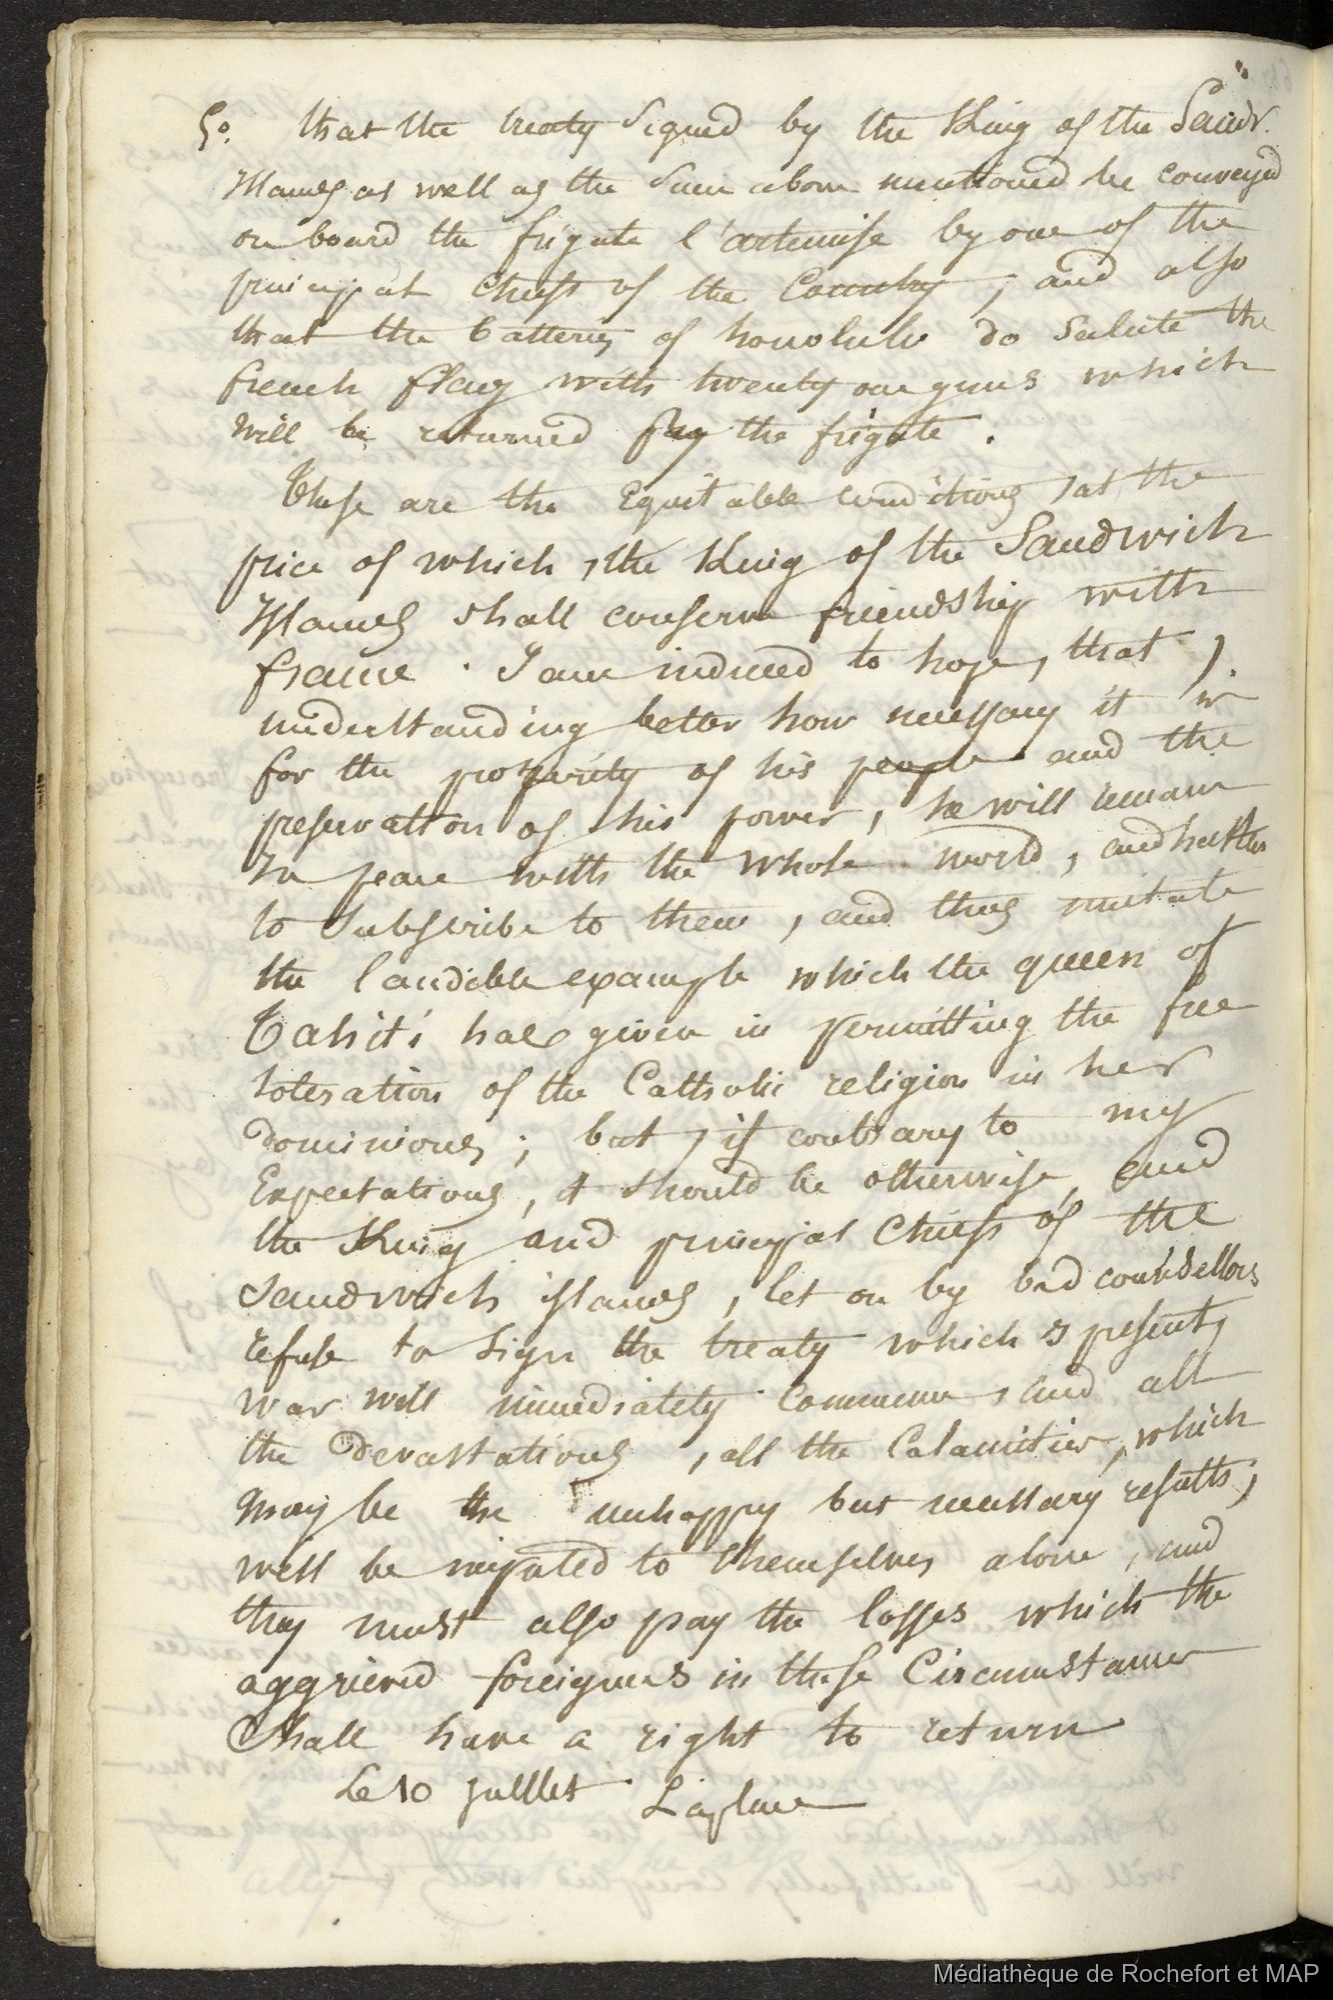 5o. that the treaty Signed by the King of the Sandw.
Islands as well as the Sum above mentioned be conveyed
on board the frigate l'artemise by one of the
principal chiefs of the Country, and also
that the batteries of honolulu do Salute the
french flag with twenty one guns which
will be returned by the frigate.
These are the Equitable conditions, at the
price of which, the King of the Sandwich
Islands shall conserve friendship with
france. I am induced to hope, that,
understanding better how necessary it is
for the prosperity of his people and the
preservation of his power, he will remain
In peace with the whole world, and hasten
to Subscribe to them, and thus imitate
the laudible example which the queen of
Tahiti has given in permitting the free
toleration of the Catholic religion in her
dominions; but, if contrary to my
Expectations, it should be otherwise, and
the King and principal Chiefs of the
Sandwich islands, let on by bad counsellors
refuse to sign the treaty which I present,
war will immediately commence, and all
the devastations, all the Calamities, which
may be the unhappy but necessary results,
will be imputed to themselves alone, and
they must also pay the losses which the
aggrieved foreigners in these Circumstances
Shall have a right to return
Le 10 Juillet Laplace
Médiathèque de Rochefort et MAP